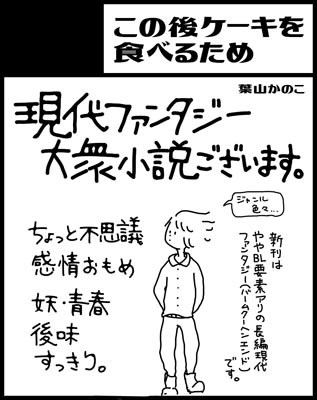 この後ケーキを
食べるため
葉山かのこ
現代ファンタジー
大衆小説ございます。
ジャンル
色々…
新刊は
ややBL要素アリの長編現代
ファンタジー(バームクーヘンエンド)
です。
ちょっと不思議
感情おもめ
妖・青春
後味
すっきり。